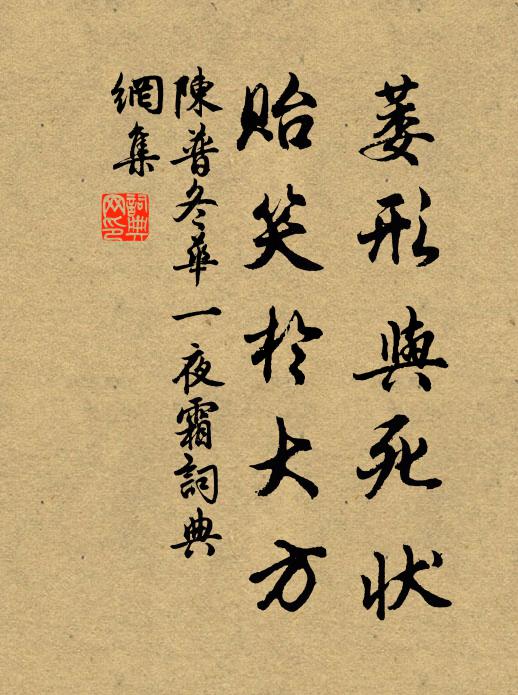 萎形與死狀
貽笑於大方
陳普冬華一夜霜詞典
網集
詞典
网印